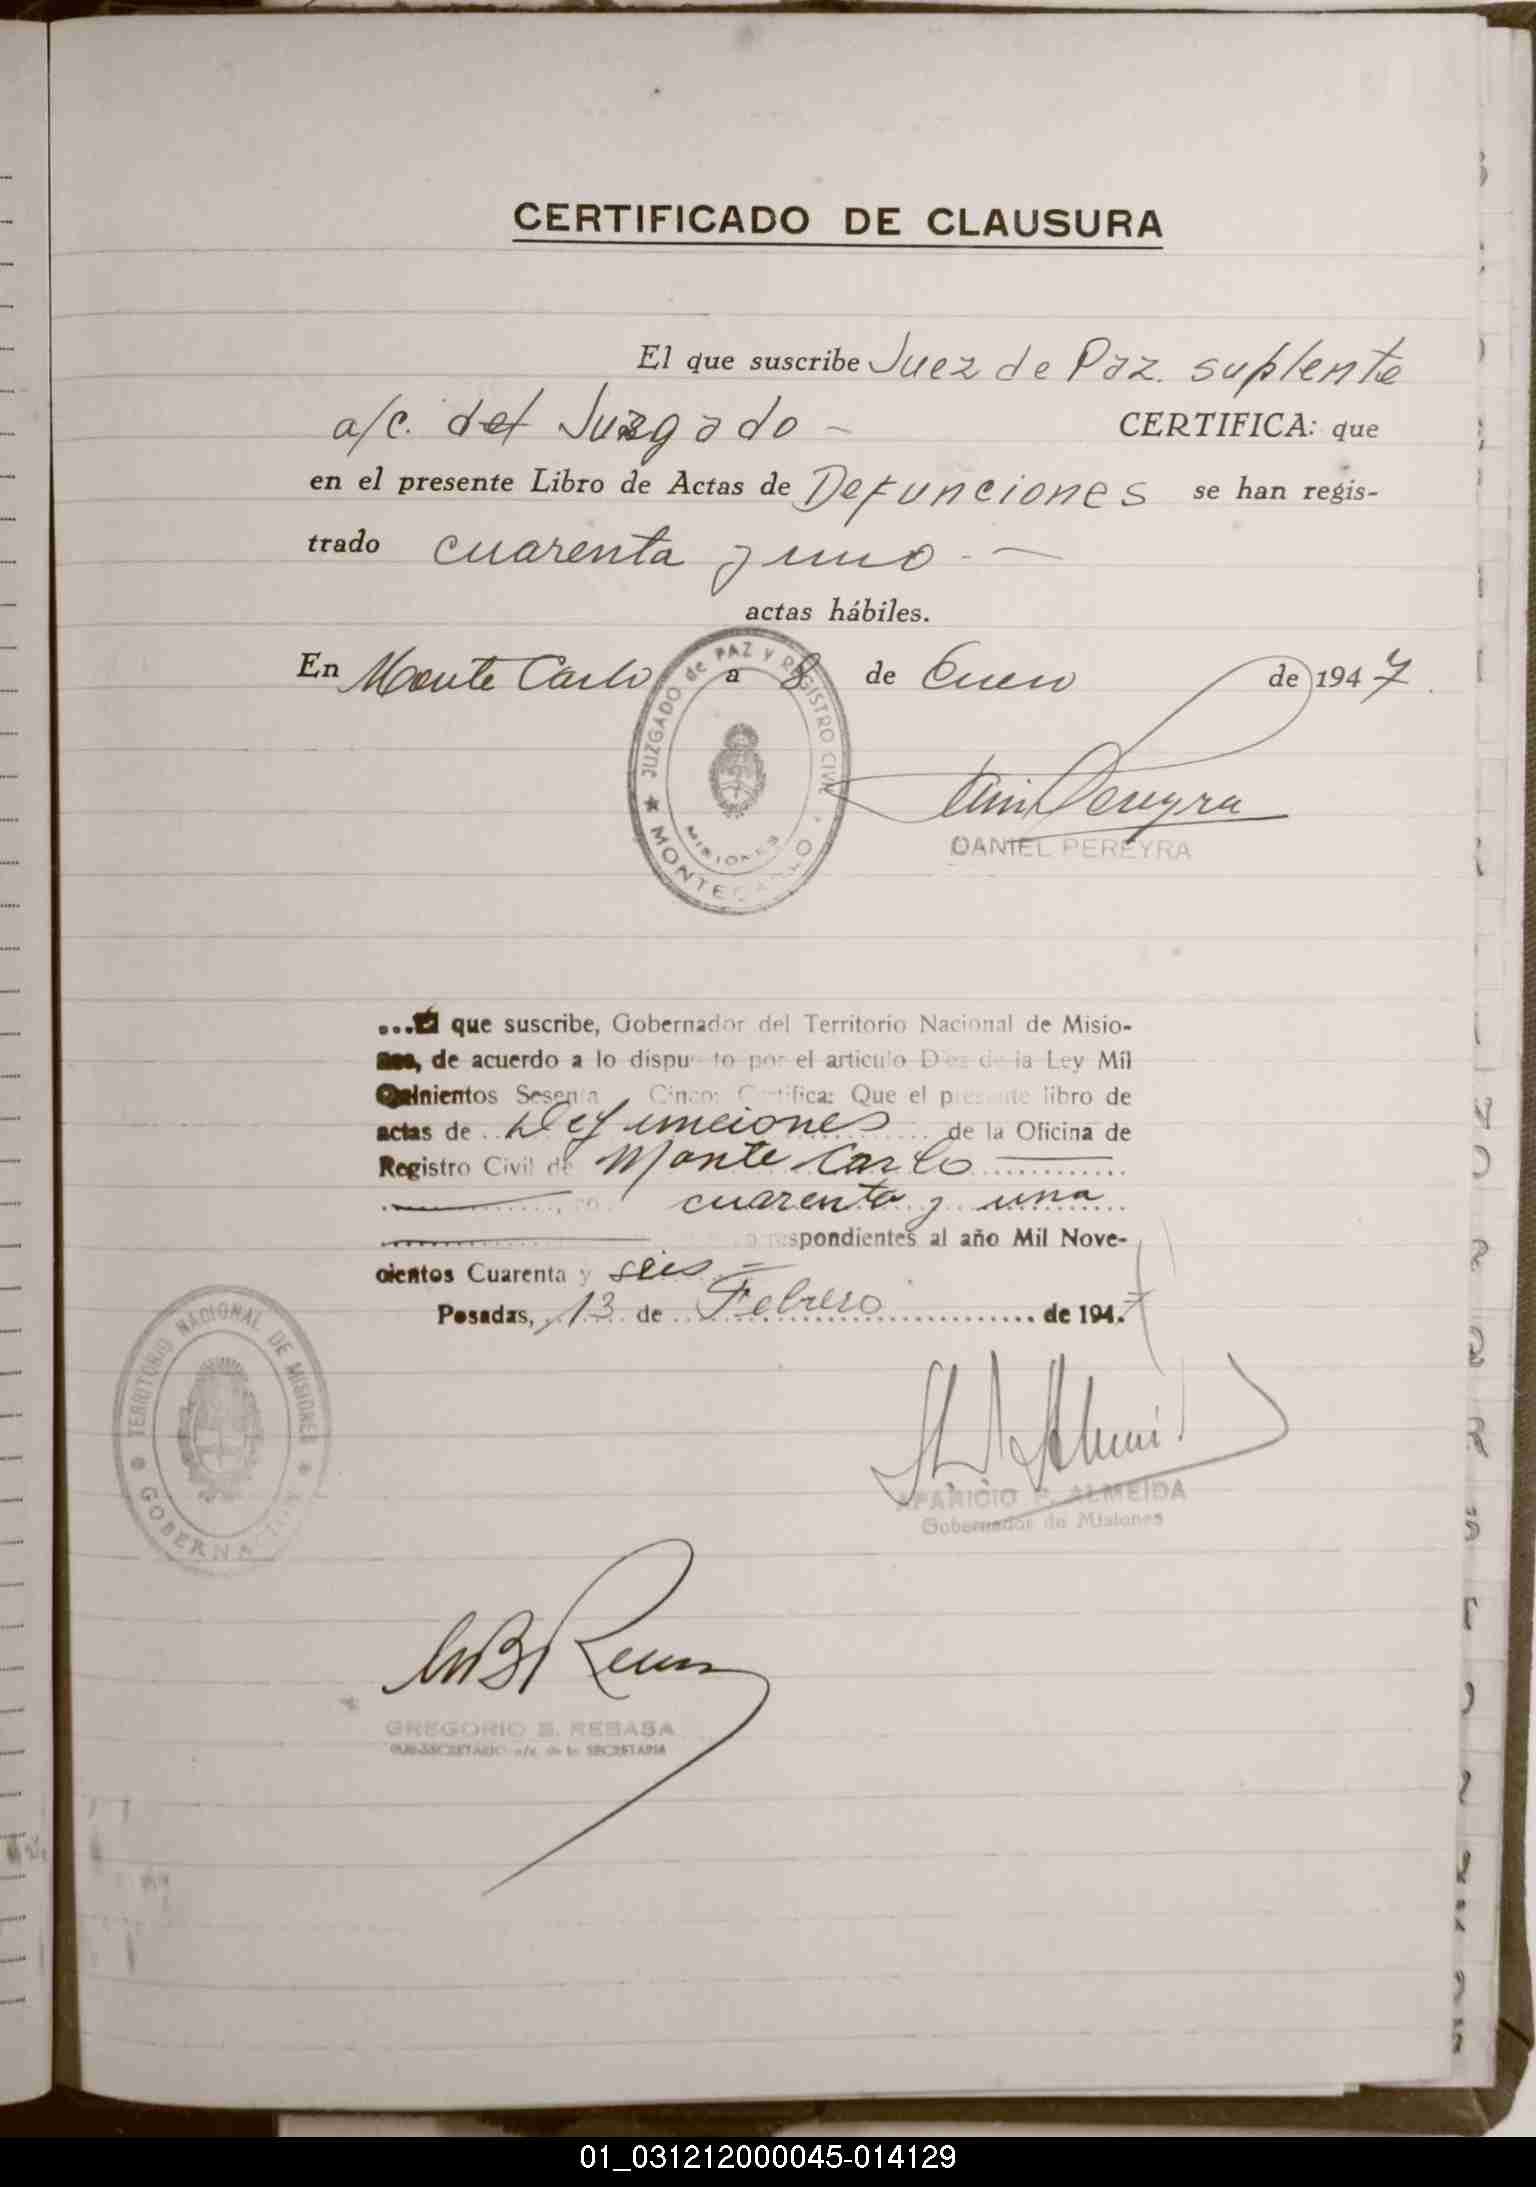 CERTIFICADO DE CLAUSURA
El que suscribe Juez de Paz. suplente
a/c. del Juzgado - CERTIFICA: que
en el presente Libro de Actas de Defunciones se han regis-
trado cuarenta y uno. —
actas hábiles.
En Monte Carlo a 8 de Enero de 1947.
JUZGADO de PAZ Y REGISTRO CIVIL
MISIONES
MONTECARLO
DANIEL PEREYRA
...El que suscribe, Gobernador del Territorio Nacional de Misio-
nes, de acuerdo a lo dispuesto por el artículo Diez de la Ley Mil
Quinientos Sesenta Cinco: Certifica: Que el presente libro de
actas de Defunciones de la Oficina de
Registro Civil de Monte Carlo
cuarenta y una
respondientes al año Mil Nove-
cientos Cuarenta y seis =
Posadas, 13 de Febrero de 1947
TERRITORIO NACIONAL DE MISIONES
GOBERNACION
APARICIO P. ALMEIDA
Gobernador de Misiones
GREGORIO B. REBASA
SUB-SECRETARIO a/c. de la SECRETARIA
01_031212000045-014129